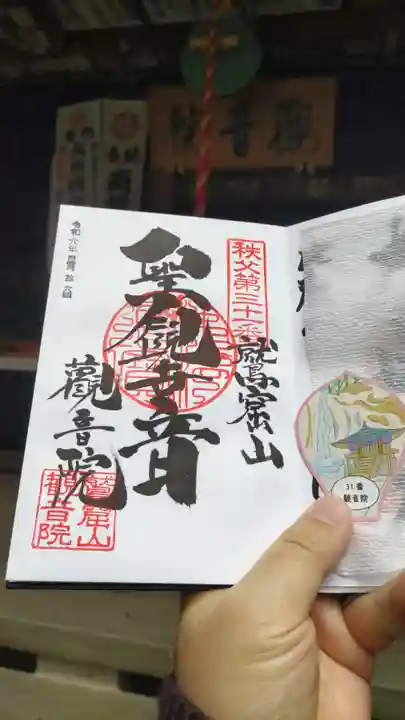 觀音院
秩父第三十一番
鷲窟山
聖觀世音
觀音院
令和六年
鷲窟山
観音院
31番
観音院